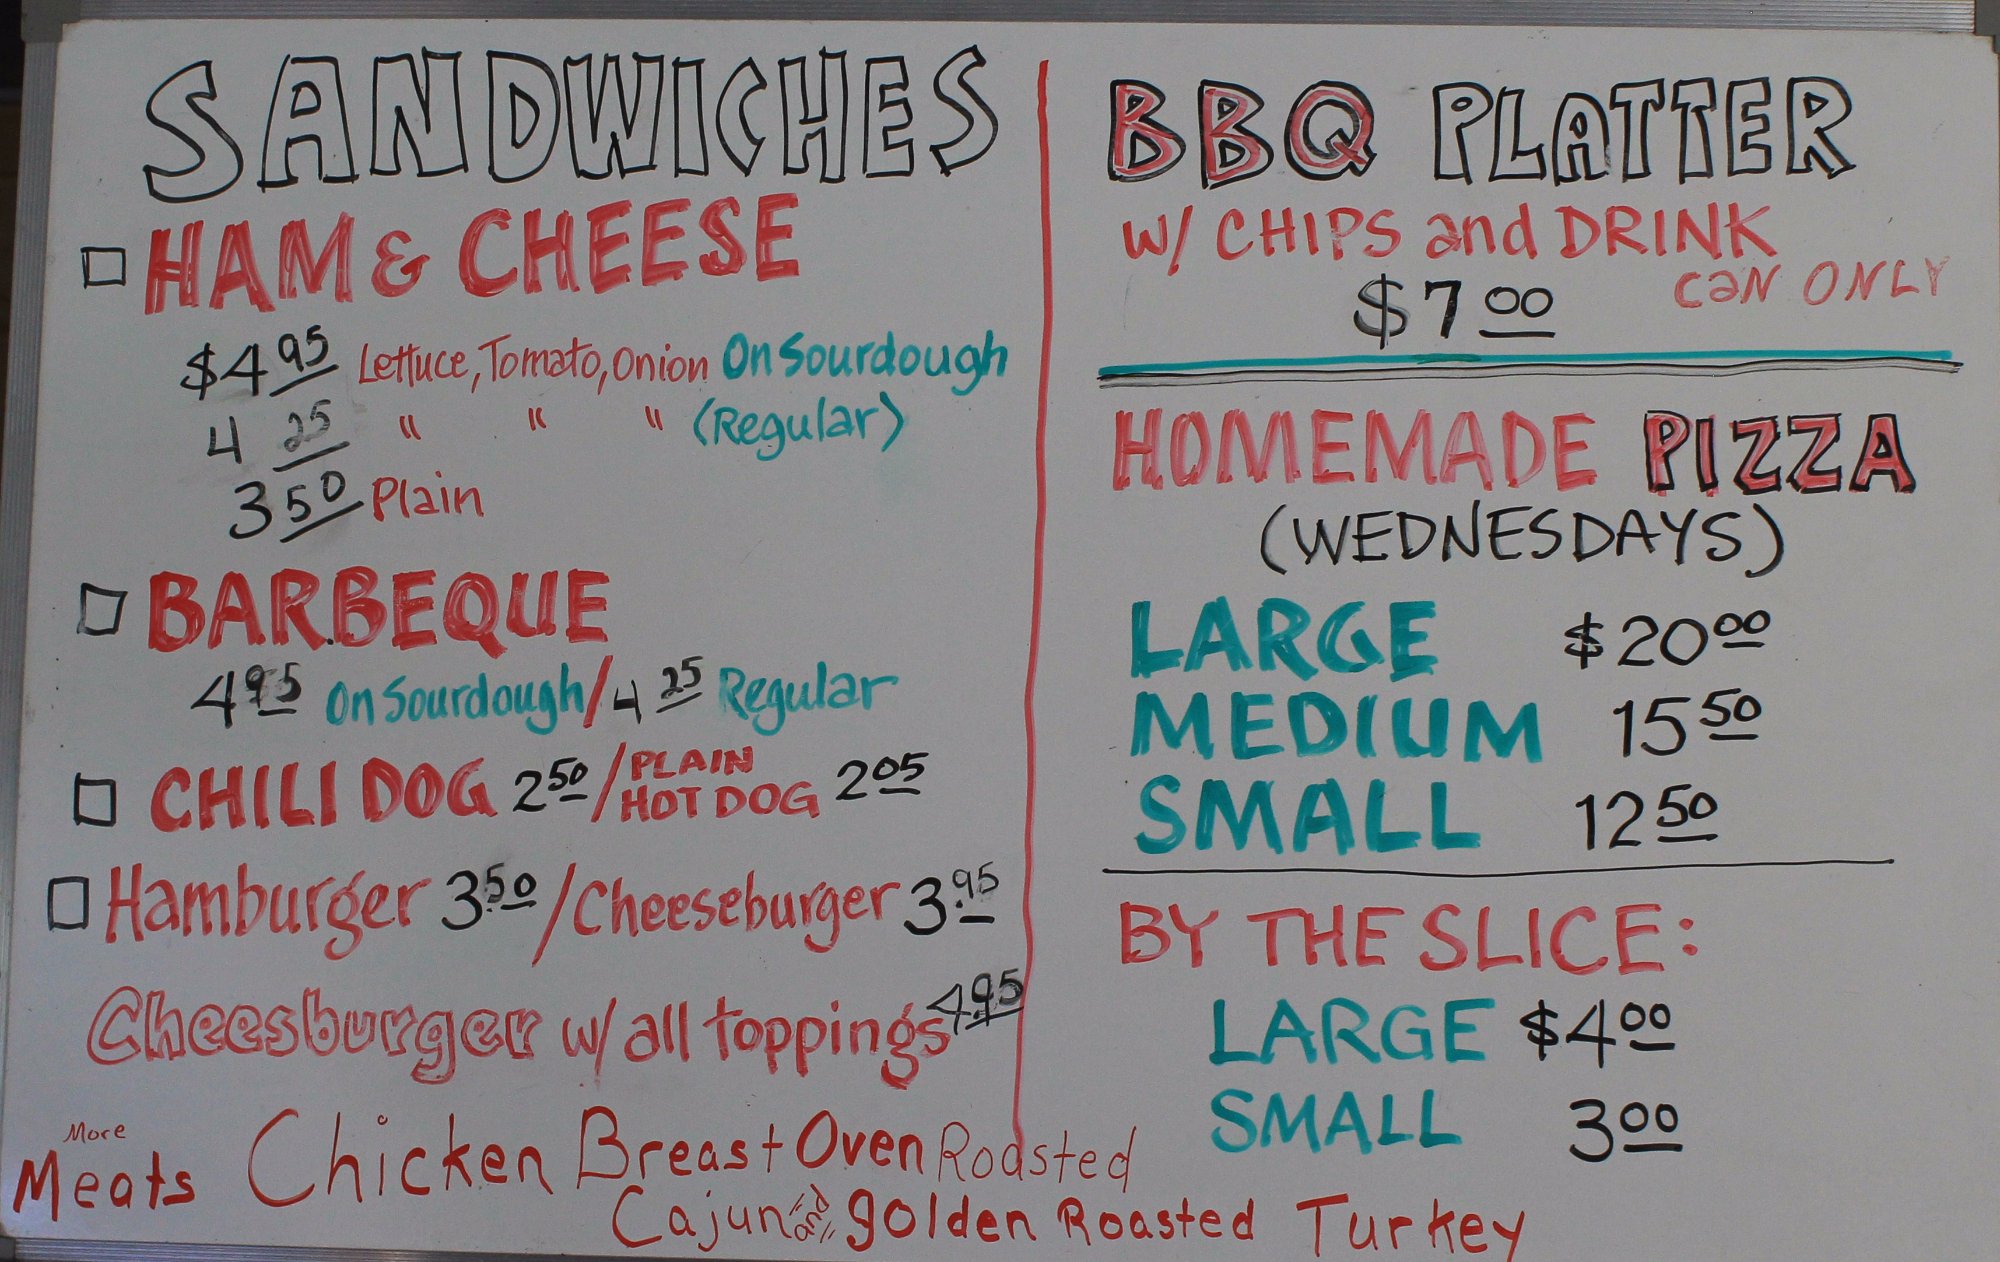 SANDWICHES
HAM & CHEESE
$4.95 Lettuce, Tomato, Onion On Sourdough
4.25 " " " (Regular)
3.50 Plain
BARBEQUE
4.95 On Sourdough / 4.25 Regular
CHILI DOG 2.50 / PLAIN HOT DOG 2.05
Hamburger 3.50 / Cheeseburger 3.95
Cheesburger w/ all toppings 4.95
More
Meats Chicken Breast Oven Roasted
Cajun and golden Roasted Turkey
BBQ PLATTER
W/ CHIPS and DRINK
CAN ONLY
$7.00
HOMEMADE PIZZA
(WEDNESDAYS)
LARGE $20.00
MEDIUM 15.50
SMALL 12.50
BY THE SLICE:
LARGE $4.00
SMALL 3.00